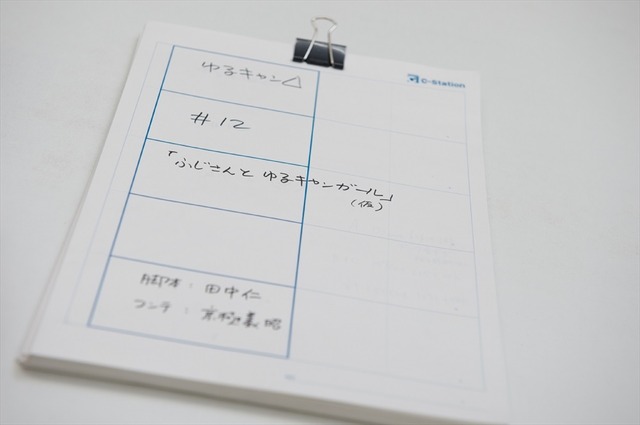 C-Station
ゆるキャン△
#12
「ふじさんと ゆるキャンガール」
(仮)
脚本：田中仁
コンテ：京極義昭